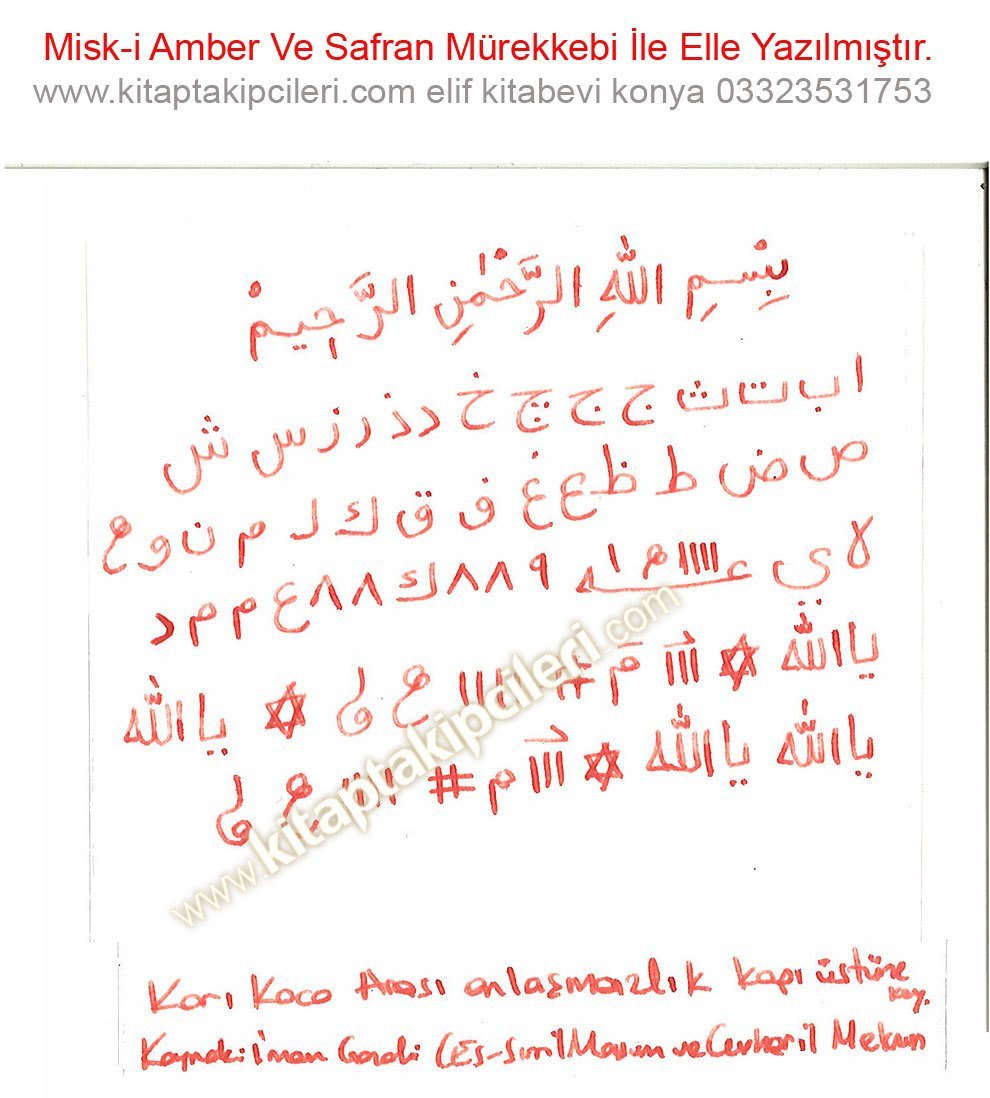 Misk-i Amber Ve Safran Mürekkebi İle Elle Yazılmıştır.
www.kitaptakipcileri.com elif kitabevi konya 03323531753
بِسْمِ اللّٰهِ الرَّحْمٰنِ الرَّحِيمْ
ا ب ت ث ج ج چ خ د ذ ر ز س ش
ص ض ط ظ ع غ ف ق ك ل م ن و ه
لا ي ٩ ٨ ٨ ك ٨ ٨ ع م م د
يا الله ✡ ااا م # اااا ه ✡ يا الله
يا الله يا الله ✡ ااا م # اااا ه
www.kitaptakipcileri.com
Karı Koca Arası anlaşmazlık kapı üstüne
koy.
Kaynak: İmam Gazali (Es-Sırril Masun ve Cevheril Meknun